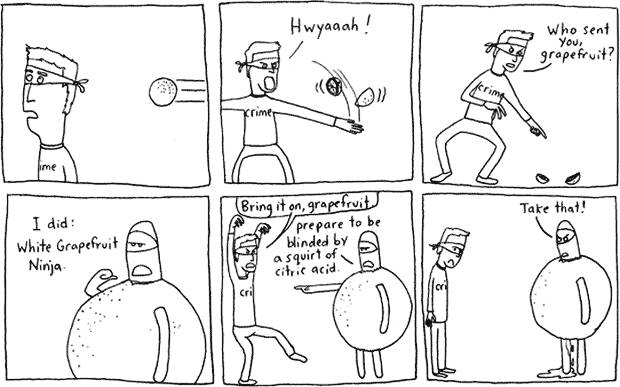 ime
Hwyaaah!
crime
Who sent
you,
grapefruit?
crime
I did:
White Grapefruit
Ninja.
Bring it on, grapefruit.
prepare to be
blinded by
a squirt of
citric acid.
cri
Take that!
cri